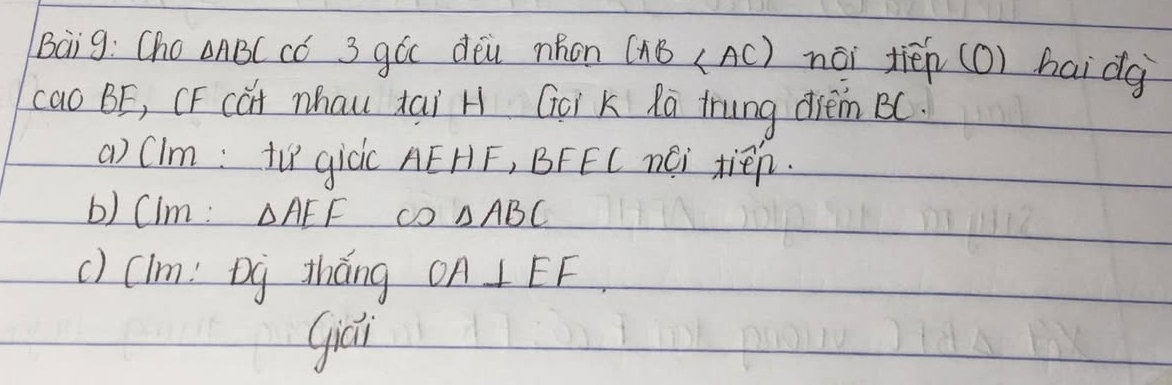 Bài 9: Cho ΔABC có 3 góc đều nhọn (AB < AC) nội tiếp (O) hai đg
cao BE, CF cắt nhau tại H. Gọi K là trung điểm BC.
a) C/m : tứ giác AEHF, BFEC nội tiếp.
b) C/m : ΔAEF ∽ ΔABC
c) C/m : Đg thẳng OA ⊥ EF.
Giải